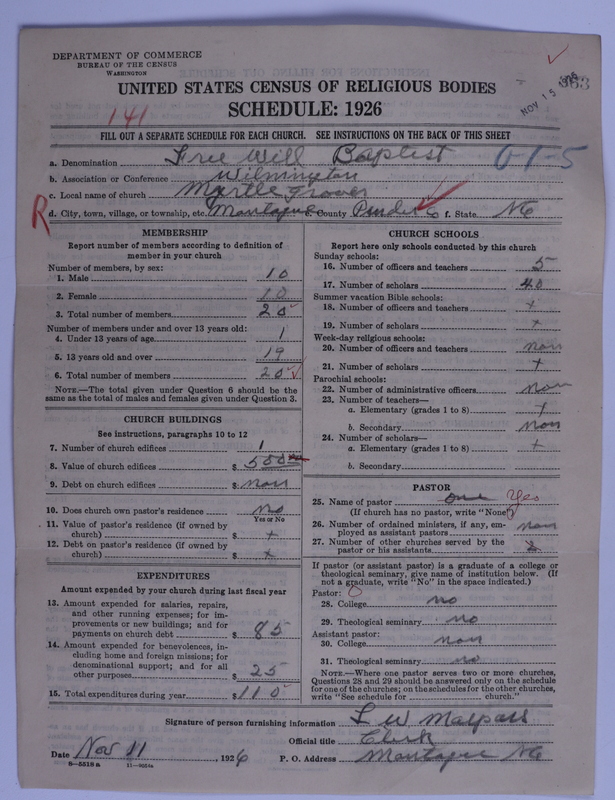 DEPARTMENT OF COMMERCE
BUREAU OF THE CENSUS
WASHINGTON
NOV 15 1926
UNITED STATES CENSUS OF RELIGIOUS BODIES
141
SCHEDULE: 1926
FILL OUT A SEPARATE SCHEDULE FOR EACH CHURCH. SEE INSTRUCTIONS ON THE BACK OF THIS SHEET
a. Denomination Free Will Baptist 01-5
b. Association or Conference Wilmington
c. Local name of church Myrtle grove
R d. City, town, village, or township, etc. Montague e. County Pender f. State NC
MEMBERSHIP
Report number of members according to definition of member in your church
Number of members, by sex:
1. Male 10
2. Female 10
3. Total number of members 20
Number of members under and over 13 years old:
4. Under 13 years of age 1
5. 13 years old and over 19
6. Total number of members 20
NOTE.—The total given under Question 6 should be the same as the total of males and females given under Question 3.
CHURCH BUILDINGS
See instructions, paragraphs 10 to 12
7. Number of church edifices 1
8. Value of church edifices $ 500
9. Debt on church edifices $ non
10. Does church own pastor's residence no
Yes or No
11. Value of pastor's residence (if owned by church) $ +
12. Debt on pastor's residence (if owned by church) $ +
EXPENDITURES
Amount expended by your church during last fiscal year
13. Amount expended for salaries, repairs, and other running expenses; for improvements or new buildings; and for payments on church debt $ 85
14. Amount expended for benevolences, including home and foreign missions; for denominational support; and for all other purposes $ 25
15. Total expenditures during year $ 110
CHURCH SCHOOLS
Report here only schools conducted by this church
Sunday schools:
16. Number of officers and teachers 5
17. Number of scholars 40
Summer vacation Bible schools:
18. Number of officers and teachers +
19. Number of scholars +
Week-day religious schools:
20. Number of officers and teachers non
21. Number of scholars +
Parochial schools:
22. Number of administrative officers non
23. Number of teachers—
a. Elementary (grades 1 to 8) +
b. Secondary non
24. Number of scholars—
a. Elementary (grades 1 to 8) +
b. Secondary
PASTOR
25. Name of pastor one Yes
(If church has no pastor, write "None")
26. Number of ordained ministers, if any, employed as assistant pastors non
27. Number of other churches served by the pastor or his assistants
If pastor (or assistant pastor) is a graduate of a college or theological seminary, give name of institution below. (If not a graduate, write "No" in the space indicated.)
Pastor:
28. College no
29. Theological seminary no
Assistant pastor:
30. College non
31. Theological seminary no
NOTE.—Where one pastor serves two or more churches, Questions 28 and 29 should be answered only on the schedule for one of the churches; on the schedules for the other churches, write "See schedule for church."
Signature of person furnishing information L W Malpass
Official title Clerk
Date Nov 11, 1926 P. O. Address Montague NC
8—5518 a